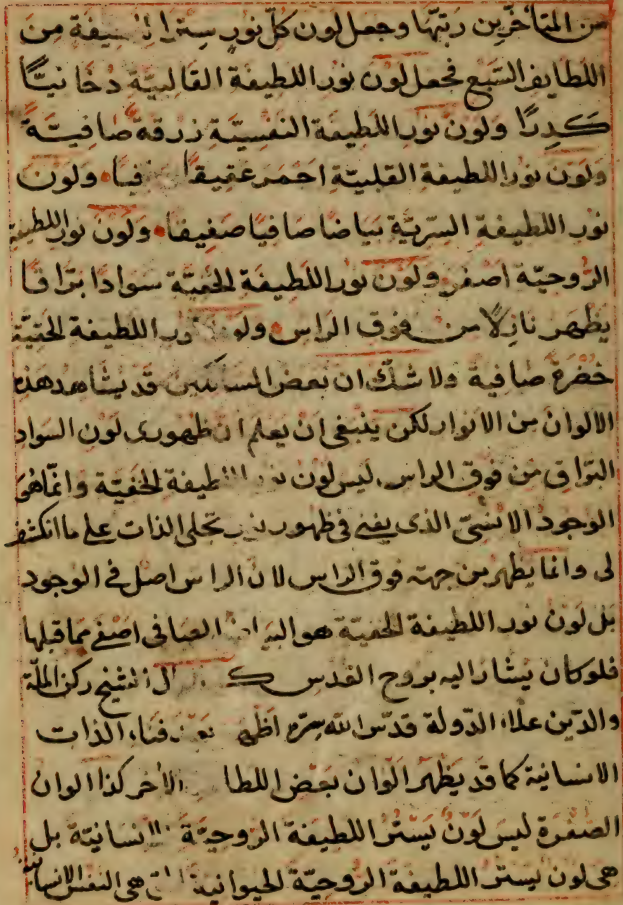 من المتأخرين رتبها وجعل لون كل نور ستر اللطيفة من
اللطايف السبع فجعل لون نور اللطيفة القالبية دخانيًا
كدرًا ولون نور اللطيفة النفسية زرقة صافية
ولون نور اللطيفة القلبية احمر عقيقا فيا ولون
نور اللطيفة السرية بياضا صافيا صفيفا ولون نور اللطيفة
الروحية اصفر ولون نور اللطيفة الخفية سوادا براقا
يظهر نازلا من فوق الراس ولون نور اللطيفة الحقية
خضرة صافية ولا شك ان بعض السالكين قد يشاهد هذه
الالوان من الانوار لكن ينبغي ان يعلم ان ظهور لون السواد
البراق من فوق الراس ليس لون نور اللطيفة الخفية وانما هو
الوجود الذي يفنى في ظهور نور تجلى الذات على ما انكشف
لي وانما يظهر من جهة فوق الراس لان الراس اصل في الوجود
بل لون نور اللطيفة الخفية هو الصافي اصفى مما قبلها
فلو كان يشار اليه بروح القدس قال الشيخ ركن الملة
والدين علاء الدولة قدس الله سره فناء الذات
الانسانية كما قد يظهر الوان بعض الاخر كذا الوان
الصفرة ليس لون يستر اللطيفة الروحية الانسانية بل
هي لون يستر اللطيفة الروحية الحيوانية التي هي النفس الانسانية